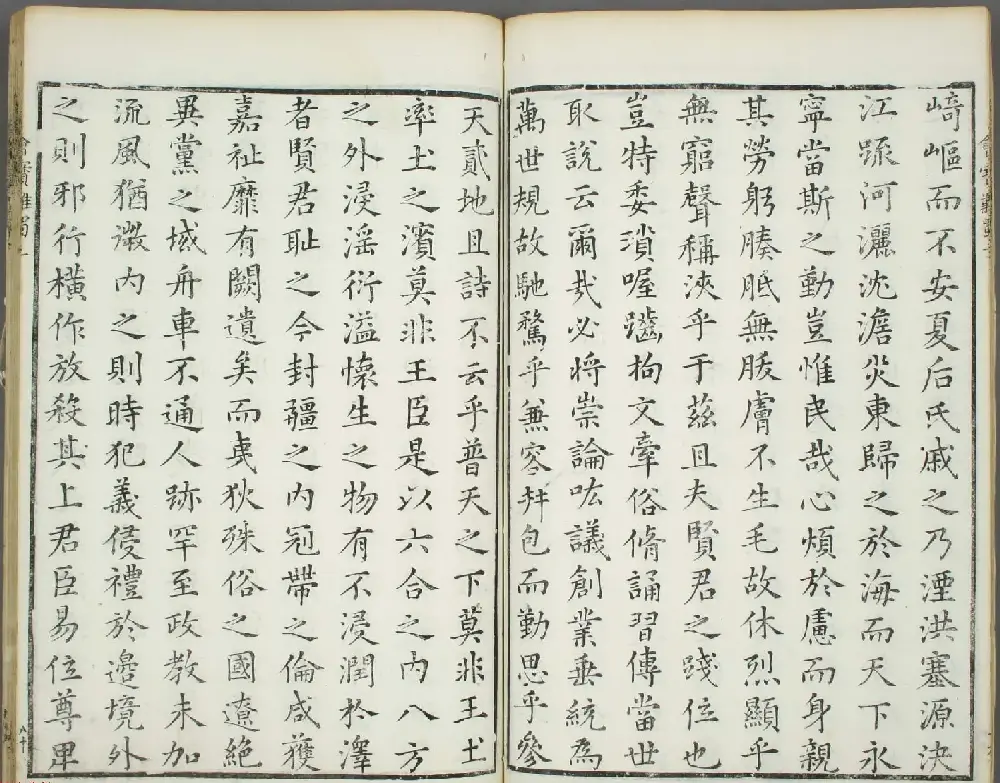 崎嶇而不安夏后氏戚之乃湮洪塞源決
江疏河灑沈澹災東歸之於海而天下永
寧當斯之勤豈惟民哉心煩於慮而身親
其勞躬腠胝無胈膚不生毛故休烈顯乎
無窮聲稱浹乎于茲且夫賢君之踐位也
豈特委瑣喔齪拘文牽俗脩誦習傳當世
取說云爾哉必將崇論吰議創業垂統為
萬世規故馳騖乎兼容并包而勤思乎參
天貳地且詩不云乎普天之下莫非王土
率土之濱莫非王臣是以六合之內八方
之外浸淫衍溢懷生之物有不浸潤於澤
者賢君恥之今封疆之內冠帶之倫咸獲
嘉祉靡有闕遺矣而夷狄殊俗之國遼絕
異黨之域舟車不通人跡罕至政教未加
流風猶微內之則時犯義侵禮於邊境外
之則邪行橫作放殺其上君臣易位尊卑